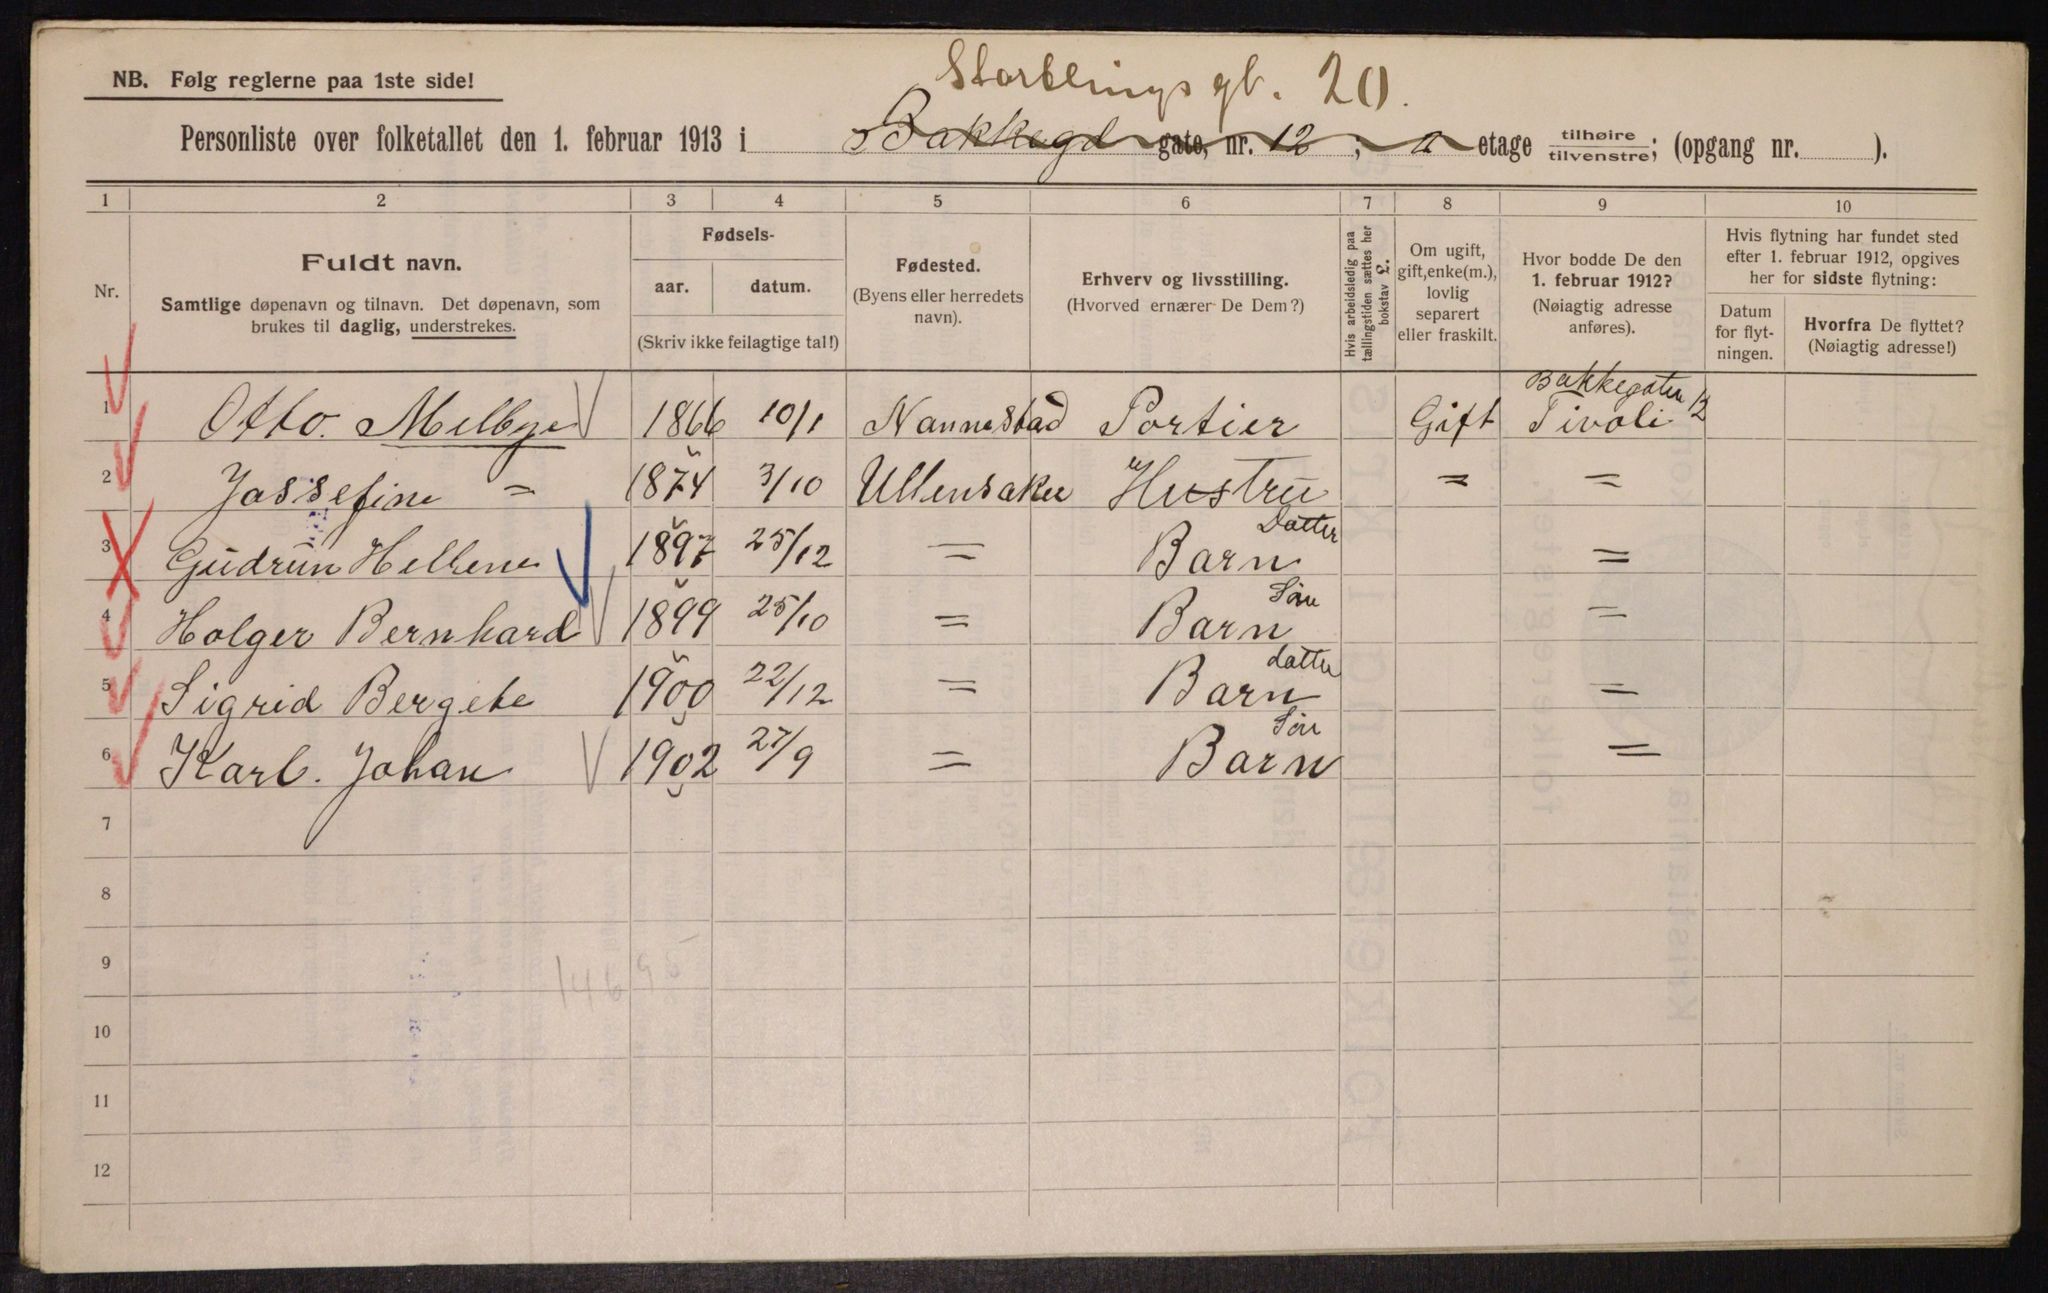 NB. Følg reglerne paa 1ste side!
Stortings gt. 20.
Personliste over folketallet den 1. februar 1913 i Bakkegd gate, nr. 12 ; a etage tilhøire/tilvenstre; (opgang nr. ).
1 2 3 4 5 6 7 8 9 10
Nr.
Fuldt navn.
Samtlige døpenavn og tilnavn. Det døpenavn, som
brukes til daglig, understrekes.
Fødsels-
aar. datum.
(Skriv ikke feilagtige tal!)
Fødested.
(Byens eller herredets
navn).
Erhverv og livsstilling.
(Hvorved ernærer De Dem?)
Hvis arbeidsledig paa
tællingstiden sættes her
bokstav £.
Om ugift,
gift, enke(m.),
lovlig
separert
eller fraskilt.
Hvor bodde De den
1. februar 1912?
(Nøiagtig adresse
anføres).
Hvis flytning har fundet sted
efter 1. februar 1912, opgives
her for sidste flytning:
Datum
for flyt-
ningen.
Hvorfra De flyttet?
(Nøiagtig adresse!)
Bakkegaten 12
1 Otto. Melbye 1866 10/1 Nannestad Portier Gift Tivoli
2 Jossefine = 1874 3/10 Ullensaker Hustru = =
Datter
3 Gudrun Hellene 1897 25/12 = Barn =
Søn
4 Holger Bernhard 1899 25/10 = Barn =
datter
5 Sigrid Bergete 1900 22/12 = Barn =
Søn
6 Karl. Johan 1902 27/9 = Barn =
7
8
9
146
10
11
12